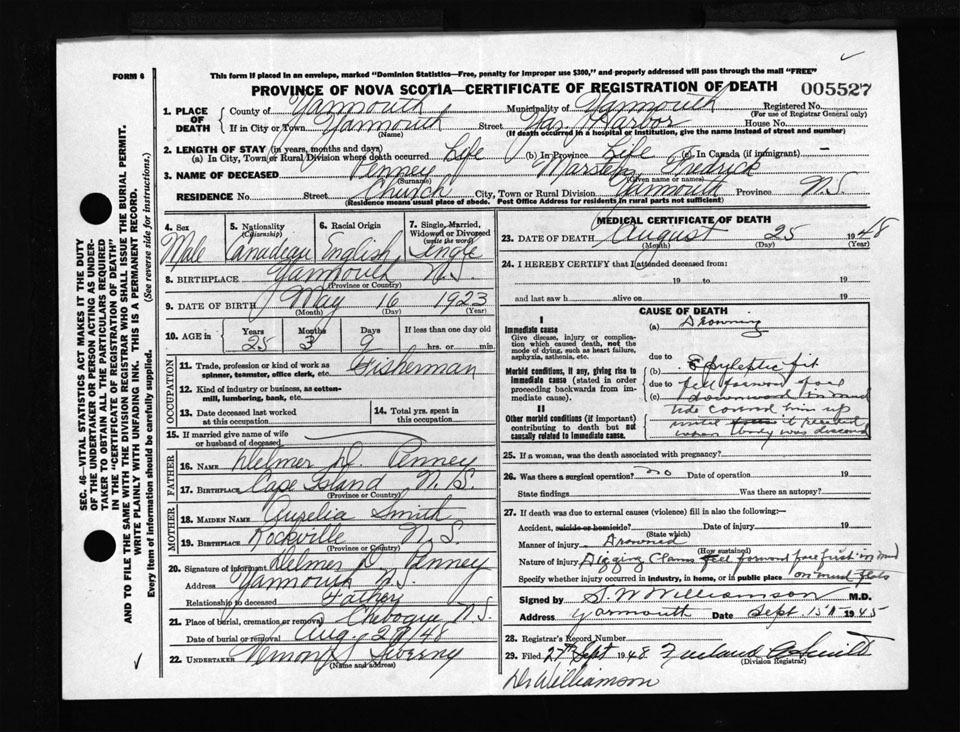 FORM 6
This form if placed in an envelope, marked "Dominion Statistics—Free, penalty for improper use $300," and properly addressed will pass through the mail "FREE"
PROVINCE OF NOVA SCOTIA—CERTIFICATE OF REGISTRATION OF DEATH 005527
1. PLACE OF DEATH County of Yarmouth Municipality of Yarmouth Registered No.
(For use of Registrar General only)
If in City or Town Yarmouth Street Yar. Harbor House No.
(Name) (If death occurred in a hospital or institution, give the name instead of street and number)
2. LENGTH OF STAY (in years, months and days)
(a) In City, Town or Rural Division where death occurred Life (b) In Province Life (c) In Canada (if immigrant) —
3. NAME OF DECEASED Penney Marsten Fredrick
(Surname) (Given name or names)
RESIDENCE No. Street Church City, Town or Rural Division Yarmouth Province N.S.
(Residence means usual place of abode. Post Office Address for residents in rural parts not sufficient)
4. Sex Male
5. Nationality (Citizenship) Canadian
6. Racial Origin English
7. Single, Married, Widowed or Divorced (write the word) Single
8. BIRTHPLACE Yarmouth N.S.
(Province or Country)
9. DATE OF BIRTH May 16 1923
(Month) (Day) (Year)
10. AGE in Years Months Days If less than one day old
25 3 9 hrs. or min.
OCCUPATION
11. Trade, profession or kind of work as spinner, teamster, office clerk, etc. Fisherman
12. Kind of industry or business, as cotton-mill, lumbering, bank, etc.
13. Date deceased last worked at this occupation
14. Total yrs. spent in this occupation
15. If married give name of wife or husband of deceased
FATHER
16. NAME Delmer D. Penney
17. BIRTHPLACE Cape Island N.S.
(Province or Country)
MOTHER
18. MAIDEN NAME Aurelia Smith
19. BIRTHPLACE Rockville N.S.
(Province or Country)
20. Signature of informant Delmer D. Penney
Address Yarmouth N.S.
Relationship to deceased Father
21. Place of burial, cremation or removal Chebogue N.S.
Date of burial or removal Aug. 27/48
22. UNDERTAKER Vernon Sweeny
(Name and address)
MEDICAL CERTIFICATE OF DEATH
23. DATE OF DEATH August 25 1948
(Month) (Day) (Year)
24. I HEREBY CERTIFY that I attended deceased from:
19 to 19
and last saw h alive on 19
CAUSE OF DEATH
I
Immediate cause
Give disease, injury or complication which caused death, not the mode of dying, such as heart failure, asphyxia, asthenia, etc.
(a) Drowning
due to
Morbid conditions, if any, giving rise to immediate cause (stated in order proceeding backwards from immediate cause).
(b) Epyleptic fit
due to fell forward face
(c) downward in mud
II
Other morbid conditions (if important) contributing to death but not causally related to immediate cause.
tide covered him up
until it receded
when body was discovered
25. If a woman, was the death associated with pregnancy?
26. Was there a surgical operation? no Date of operation 19
State findings Was there an autopsy?
27. If death was due to external causes (violence) fill in also the following:—
Accident, suicide or homicide? Date of injury 19
(State which)
Manner of injury Drowned
(How sustained)
Nature of injury Digging Clams fell forward face first in mud
Specify whether injury occurred in industry, in home, or in public place on mud flats
Signed by S. W. Williamson M.D.
Address Yarmouth Date Sept 15th 1945
28. Registrar's Record Number
29. Filed 27th Sept 1948
(Division Registrar)
Dr Williamson
SEC. 46—VITAL STATISTICS ACT MAKES IT THE DUTY OF THE UNDERTAKER OR PERSON ACTING AS UNDERTAKER TO OBTAIN ALL THE PARTICULARS REQUIRED IN THE "CERTIFICATE OF REGISTRATION OF DEATH"
AND TO FILE THE SAME WITH THE DIVISION REGISTRAR WHO SHALL ISSUE THE BURIAL PERMIT.
WRITE PLAINLY WITH UNFADING INK. THIS IS A PERMANENT RECORD.
Every item of information should be carefully supplied. (See reverse side for instructions.)